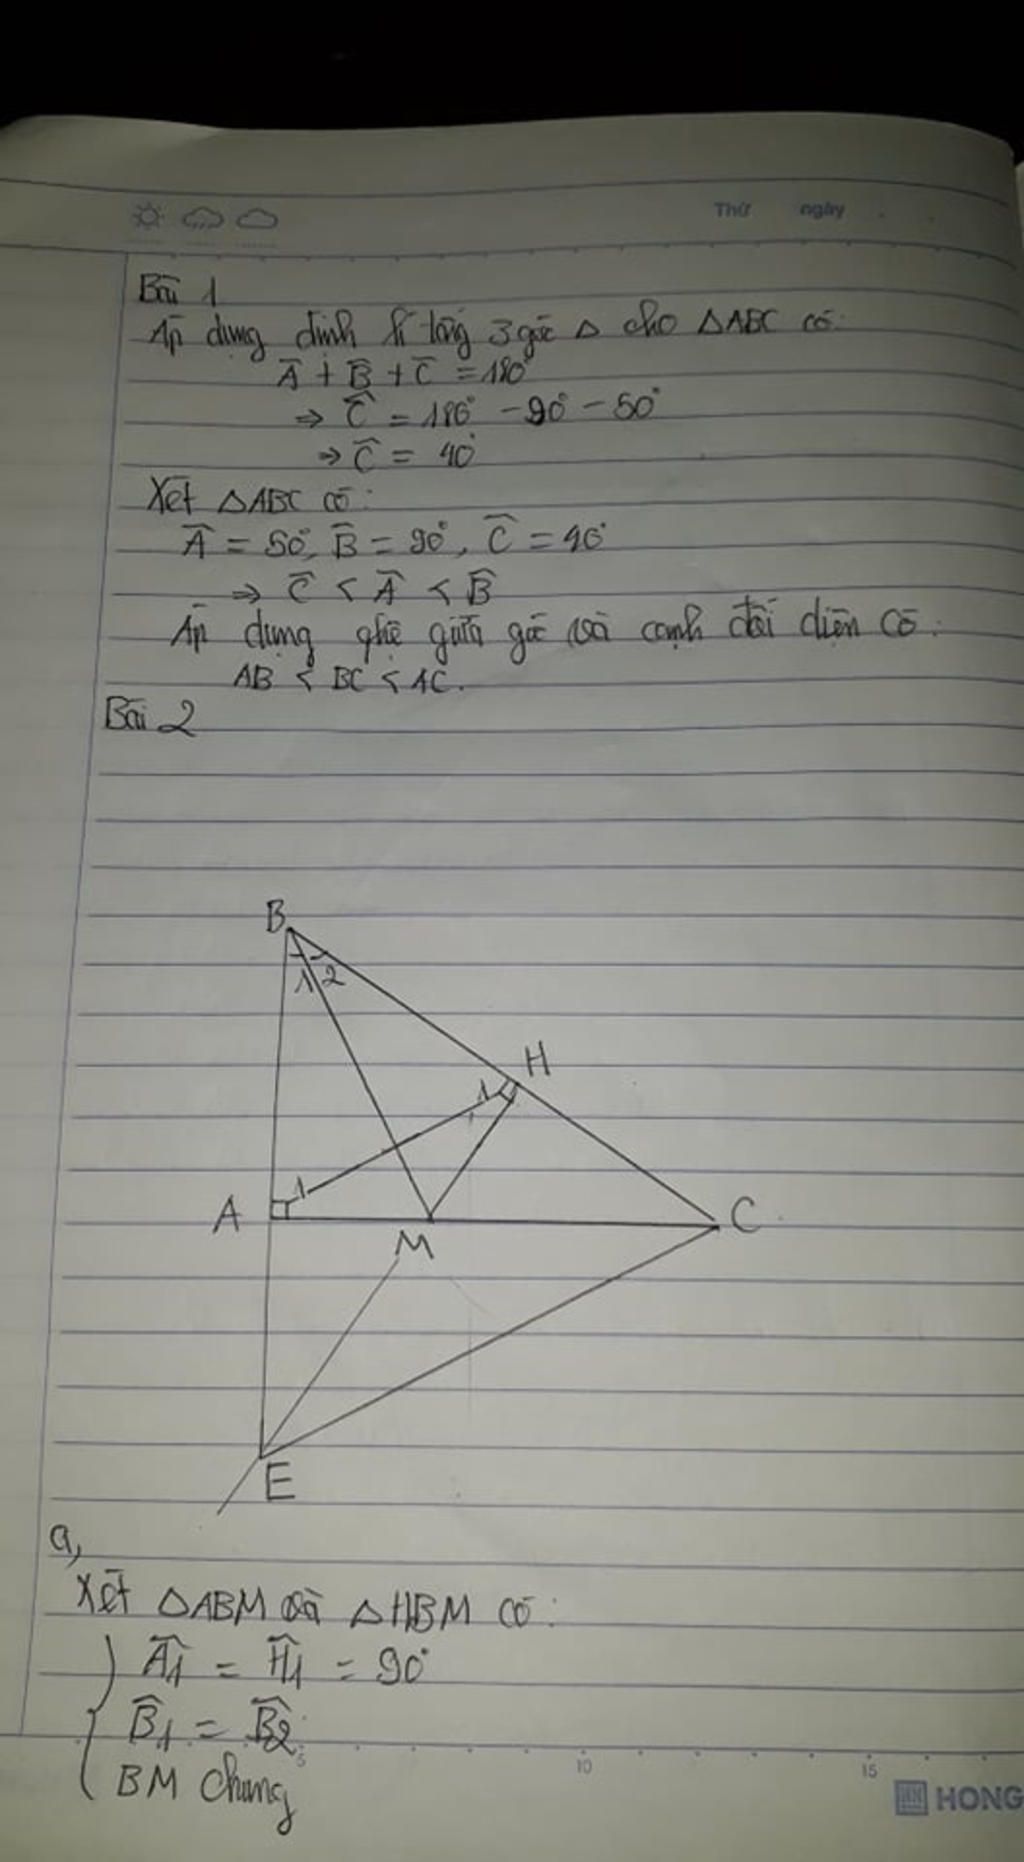 Thứ ngày
Bài 1
Áp dụng định lí tổng 3 góc △ cho △ABC có:
Â + B̂ + Ĉ = 180°
⇒ Ĉ = 180° - 90° - 50°
⇒ Ĉ = 40°
Xét △ABC có:
Â = 50°, B̂ = 90°, Ĉ = 40°
⇒ Ĉ < Â < B̂
Áp dụng qhệ giữa góc và cạnh đối diện có:
AB < BC < AC.
Bài 2
B
1 2
H
1
1
A
C
M
E
a,
Xét △ABM và △HBM có:
Â1 = Ĥ1 = 90°
B̂1 = B̂2
BM chung
5 10 15
HONG